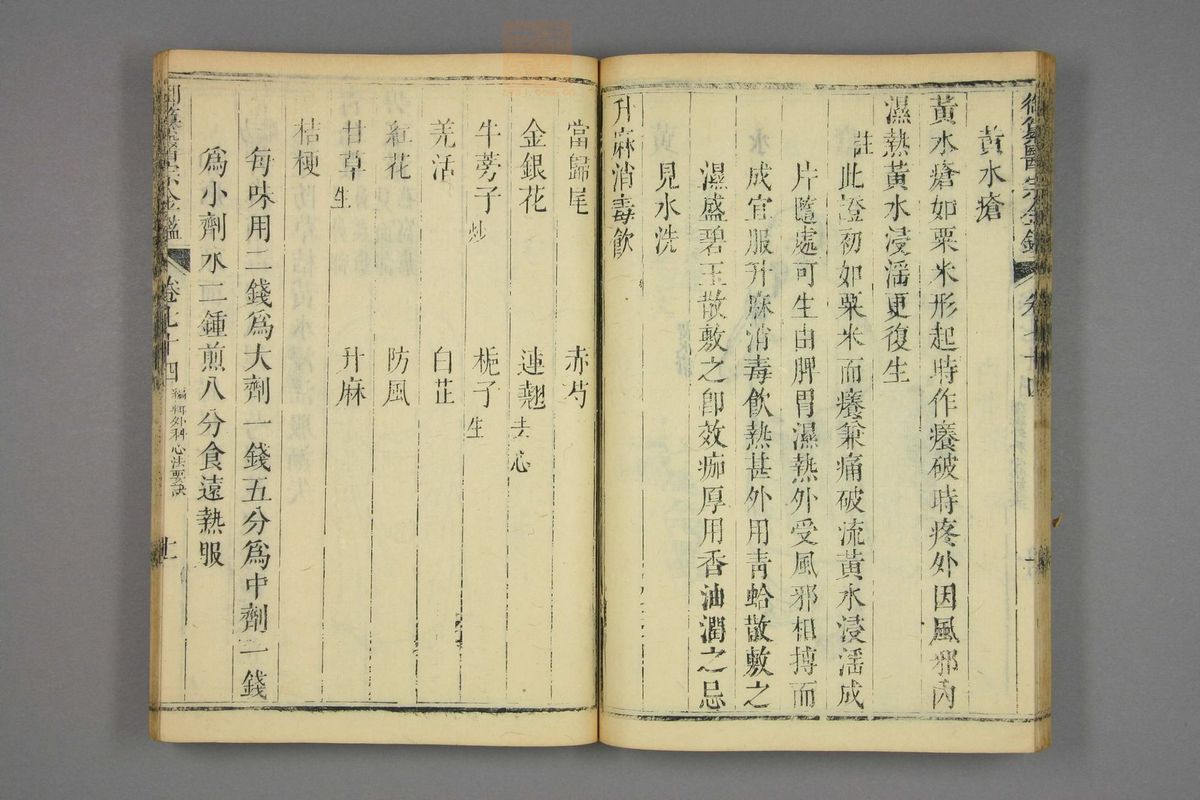 黃水瘡
黃水瘡如粟米形起時作癢破時疼外因風邪內
濕熱黃水浸淫更復生
註
此證初如粟米而癢兼痛破流黃水浸淫成
片隨處可生由脾胃濕熱外受風邪相搏而
成宜服升麻消毒飲熱甚外用青蛤散敷之
濕盛碧玉散敷之卽效痂厚用香油潤之忌
見水洗
升麻消毒飲
當歸尾 赤芍
金銀花 連翹去心
牛蒡子炒 梔子生
羌活 白芷
紅花 防風
甘草生 升麻
桔梗
每味用二錢爲大劑一錢五分爲中劑一錢
爲小劑水二鍾煎八分食遠熱服
醫宗金鑑 卷七十四 編輯外科心法要訣